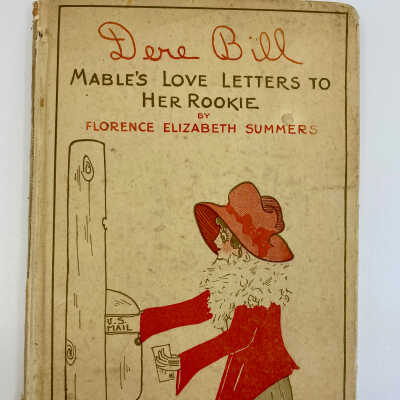 Dere Bill
MABLE'S LOVE LETTERS TO
HER ROOKIE
BY
FLORENCE ELIZABETH SUMMERS
U.S.
MAIL